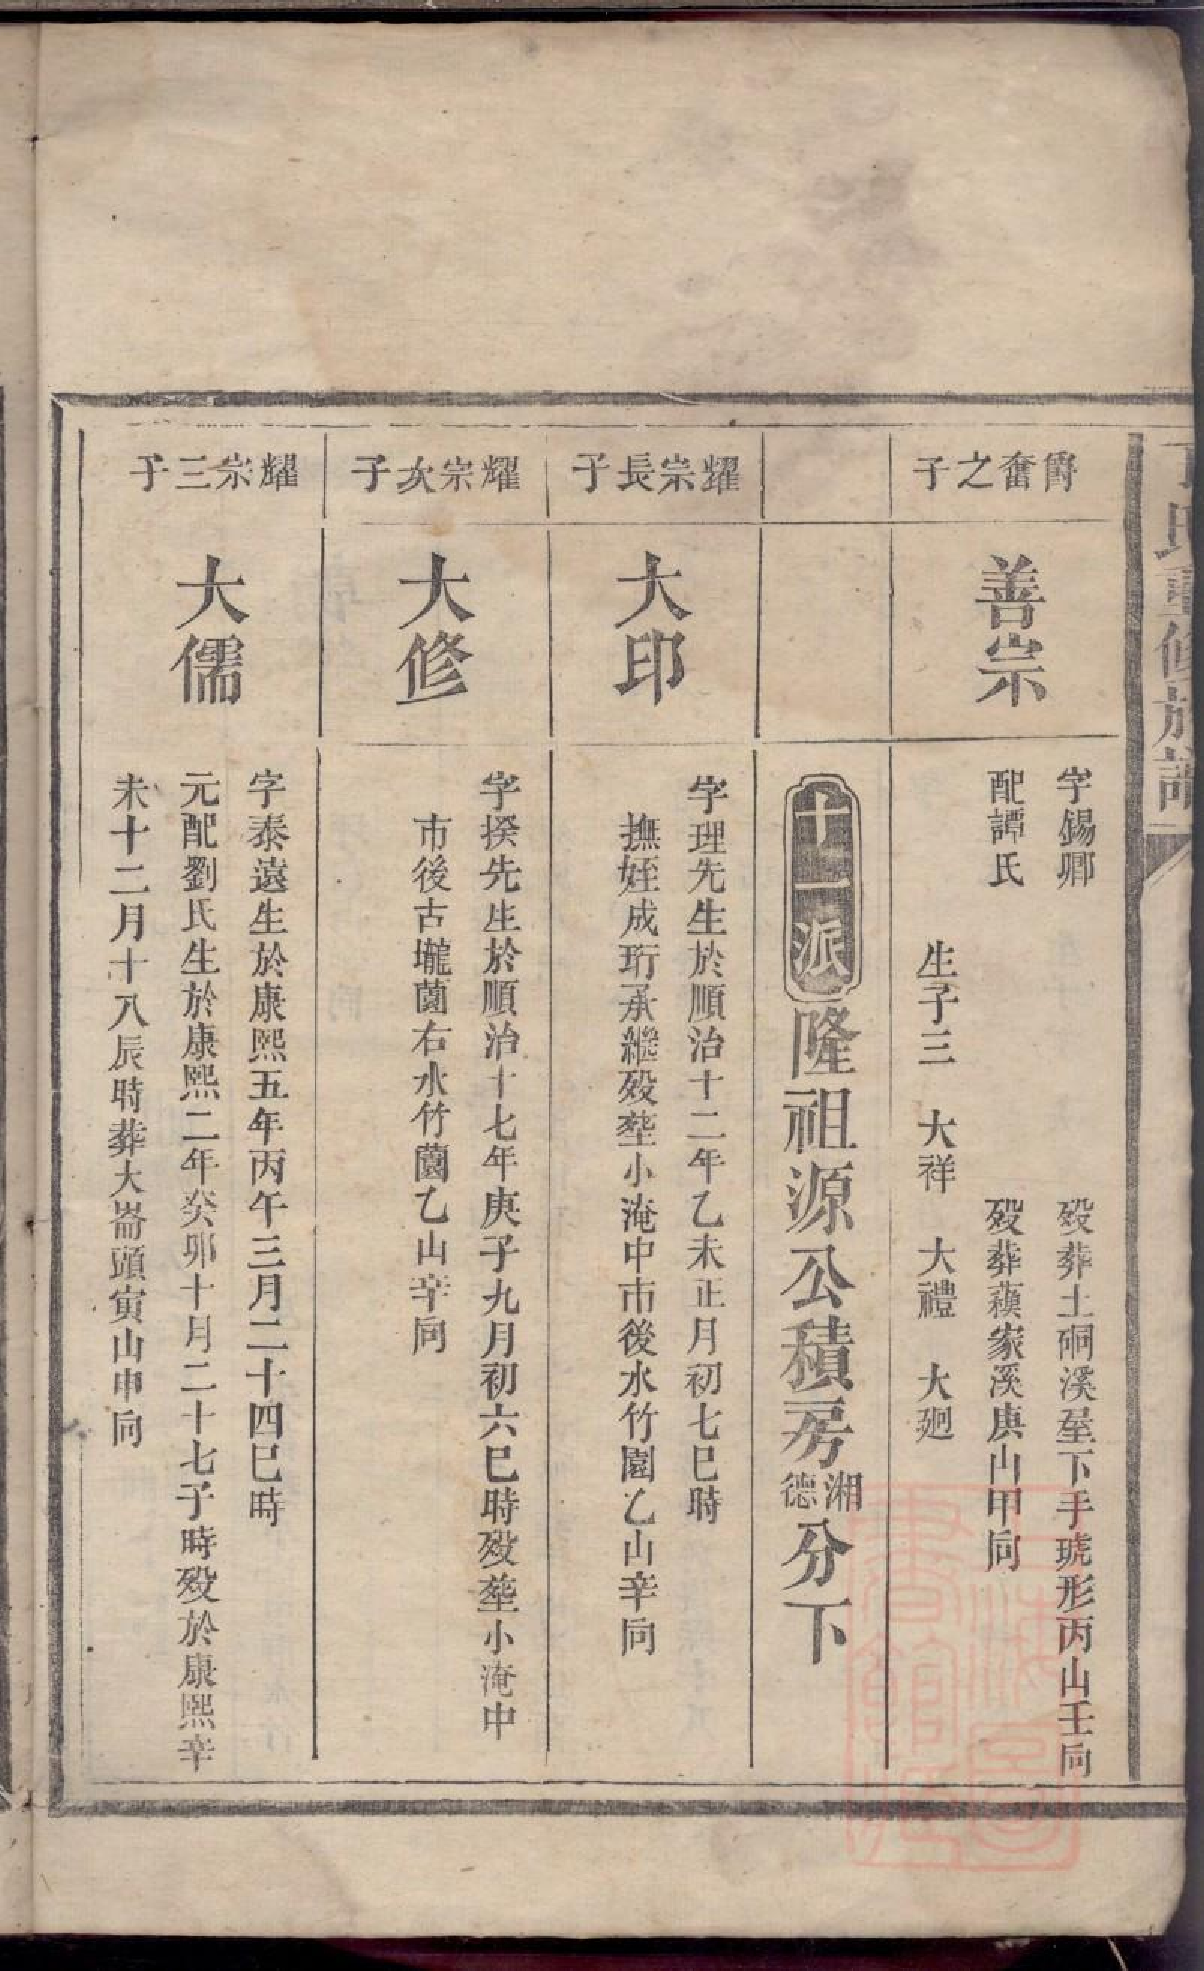 丁氏重修族譜
爵奮之子
善宗
字錫卿 歿葬土硐溪屋下手琥形丙山壬向
配譚氏 歿葬蘋家溪庚山甲向
生子三 大祥 大禮 大廻
十一派隆祖源公積房湘德分下
耀宗長子
大印
字理先生於順治十二年乙未正月初七巳時
撫姪成珩承繼歿塟小淹中市後水竹園乙山辛向
耀宗次子
大修
字揆先生於順治十七年庚子九月初六巳時歿塟小淹中
市後古壠薗右水竹薗乙山辛向
耀宗三子
大儒
字泰遠生於康熙五年丙午三月二十四巳時
元配劉氏生於康熙二年癸卯十月二十七子時歿於康熙辛
未十二月十八辰時葬大崙頭寅山申向